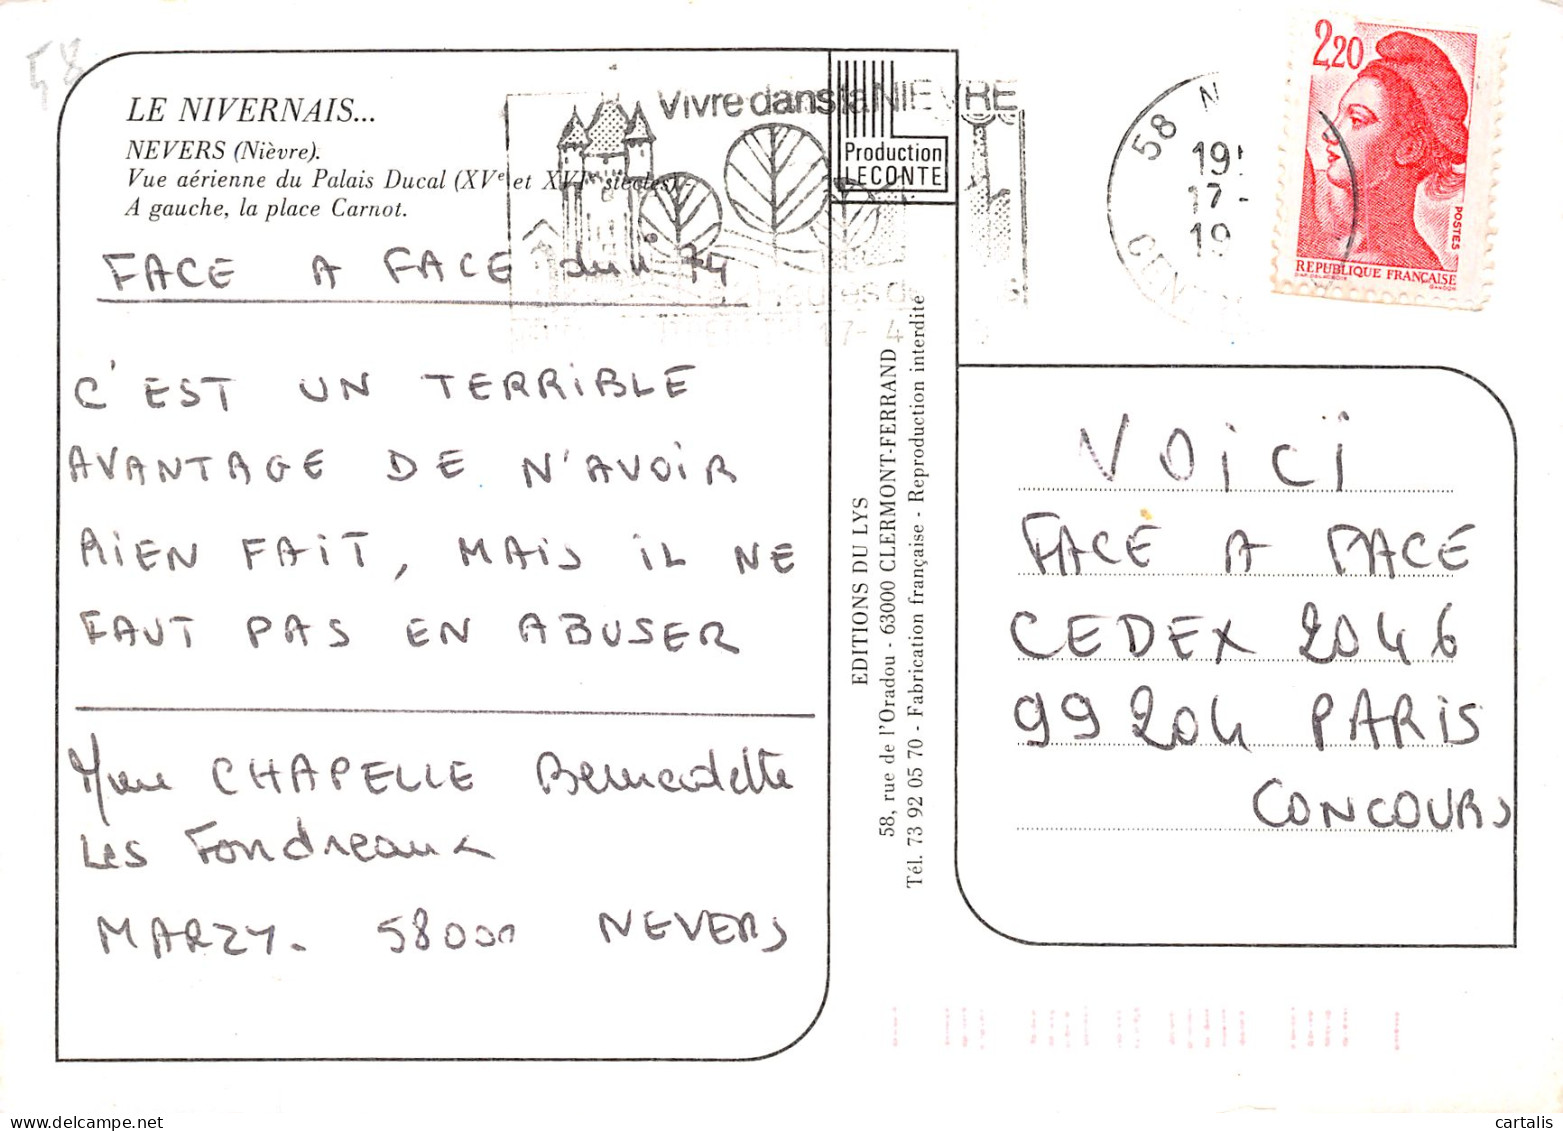 58
LE NIVERNAIS...
NEVERS (Nièvre).
Vue aérienne du Palais Ducal (XVe et XVIe siècles).
A gauche, la place Carnot.
Vivre dans la NIEVRE
Production
LECONTE
58 N
19
17-
19
2,20
POSTES
REPUBLIQUE FRANÇAISE
FACE A FACE du n° 74
C'EST UN TERRIBLE
AVANTAGE DE N'AVOIR
RIEN FAIT, MAIS IL NE
FAUT PAS EN ABUSER
Mme CHAPELLE Bernadette
Les Fondreaux
MARZY. 58000 NEVERS
EDITIONS DU LYS
58, rue de l'Oradou - 63000 CLERMONT-FERRAND
Tél. 73 92 05 70 - Fabrication française - Reproduction interdite
VOiCï
FACE A FACE
CEDEX 2046
99204 PARIS
CONCOURS
cartalis